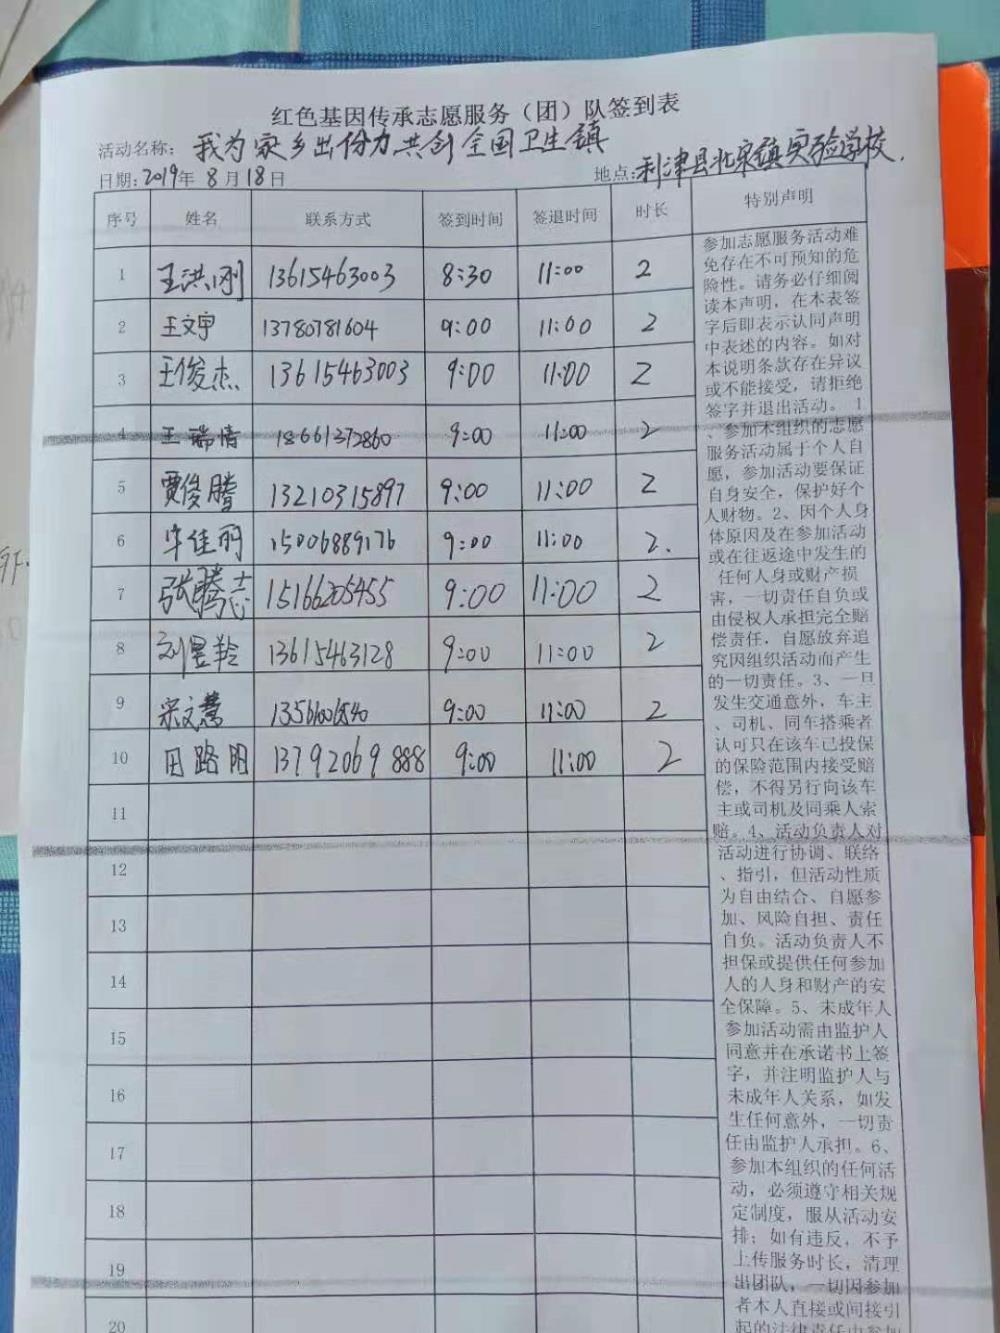 红色基因传承志愿服务（团）队签到表
活动名称：我为家乡出份力共创全国卫生镇
日期：2019年8月18日 地点：利津县北宋镇实验学校.
序号 姓名 联系方式 签到时间 签退时间 时长 特别声明
1 王洪刚 13615463003 8:30 11:00 2
2 王文宇 13780781604 9:00 11:00 2
3 王俊杰 13615463003 9:00 11:00 2
4 王瑞倩 18661372860 9:00 11:00 2
5 贾俊腾 13210315897 9:00 11:00 2
6 毕佳羽 15006889176 9:00 11:00 2.
7 张腾志 15166205455 9:00 11:00 2
8 刘昱羚 13615463128 9:00 11:00 2
9 宋文慧 9:00 11:00 2
10 田路阳 13792069888 9:00 11:00 2
11
12
13
14
15
16
17
18
19
20
参加志愿服务活动难
免存在不可预知的危
险性。请务必仔细阅
读本声明，在本表签
字后即表示认同声明
中表述的内容。如对
本说明条款存在异议
或不能接受，请拒绝
签字并退出活动。 1
、参加本组织的志愿
服务活动属于个人自
愿，参加活动要保证
自身安全，保护好个
人财物。2、因个人身
体原因及在参加活动
或在往返途中发生的
任何人身或财产损
害，一切责任自负或
由侵权人承担完全赔
偿责任，自愿放弃追
究因组织活动而产生
的一切责任。3、一旦
发生交通意外，车主
、司机、同车搭乘者
认可只在该车已投保
的保险范围内接受赔
偿，不得另行向该车
主或司机及同乘人索
赔。4、活动负责人对
活动进行协调、联络
、指引，但活动性质
为自由结合、自愿参
加、风险自担、责任
自负。活动负责人不
担保或提供任何参加
人的人身和财产的安
全保障。5、未成年人
参加活动需由监护人
同意并在承诺书上签
字，并注明监护人与
未成年人关系，如发
生任何意外，一切责
任由监护人承担。6、
参加本组织的任何活
动，必须遵守相关规
定制度，服从活动安
排；如有违反，不予
上传服务时长，清理
出团队，一切因参加
者本人直接或间接引
起的法律责任由参加